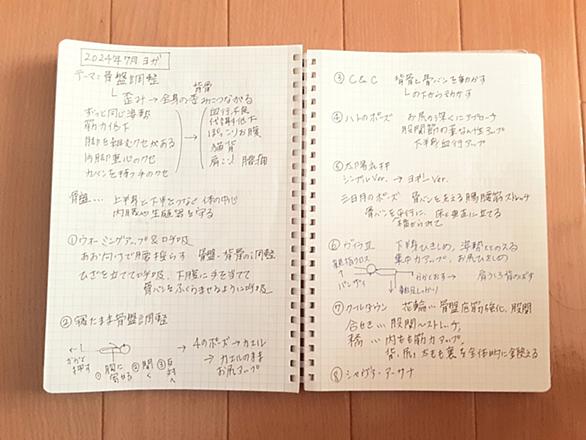 2024年7月 ヨガ
テーマ：骨盤調整
背骨
└ 歪み → 全身の歪みにつながる
ずっと同じ姿勢
筋力低下
脚を組むクセがある
内股重心のクセ
カバンを持つ手のクセ
血行不良
代謝低下
ぽっこりお腹
猫背
肩こり 腰痛
骨盤… 上半身と下半身をつなぐ 体の中心
内臓や生殖器を守る
①ウォーミングアップ&呼吸
あお向けで腰揺らす 骨盤・背骨の調整
ひざを立てて呼吸、下腹に手を当てて
骨バンをふくらませるように呼吸
②寝たまま骨盤調整
← かかとで押す
①胸に寄せる ②開く ③反対へ
→ 4のポーズ → カエル
→ カエルのまま
お尻アップ
③ C&C 背骨と骨バンを動かす
└の下からうごかす
④ハトのポーズ お尻の深くにアプローチ
股関節の柔なん性アップ
下半身血行アップ
⑤太陽礼拝
シンプルVer. → ヨギーVer.
三日月のポーズ 骨バンを支える腸腰筋ストレッチ
骨バンを平行に、床と垂直に立てる
⑥ 下半身ひきしめ、姿勢ととのえる
集中力アップ、お尻ひきしめ
親指クロス
↑
バンザイ
→ 肩
↓軸足しっかり
⑦クールダウン 花輪… 骨盤底筋強化、股関
合せき… 股関ストレッチ
橋… 内もも筋力アップ
背、尻、太もも裏を全体的に使える
⑧シャヴァーアーサナ